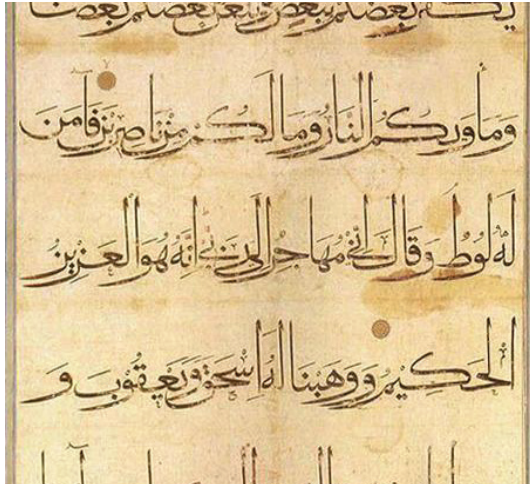 بعضكم ببعض ويلعن بعضكم بعضا
وَمَأوىكُمُ النَّارُ وَمَا لَكُم مِن نَاصِرِينَ فَآمَنَ
لَهُ لُوطٌ وَقَالَ اِنِّي مُهَاجِرٌ اِلَى رَبِّي اِنَّهُ هُوَ الْعَزِيزُ
الْحَكِيمُ وَوَهَبْنَا لَهُ اِسْحَقَ وَيَعْقُوبَ وَ